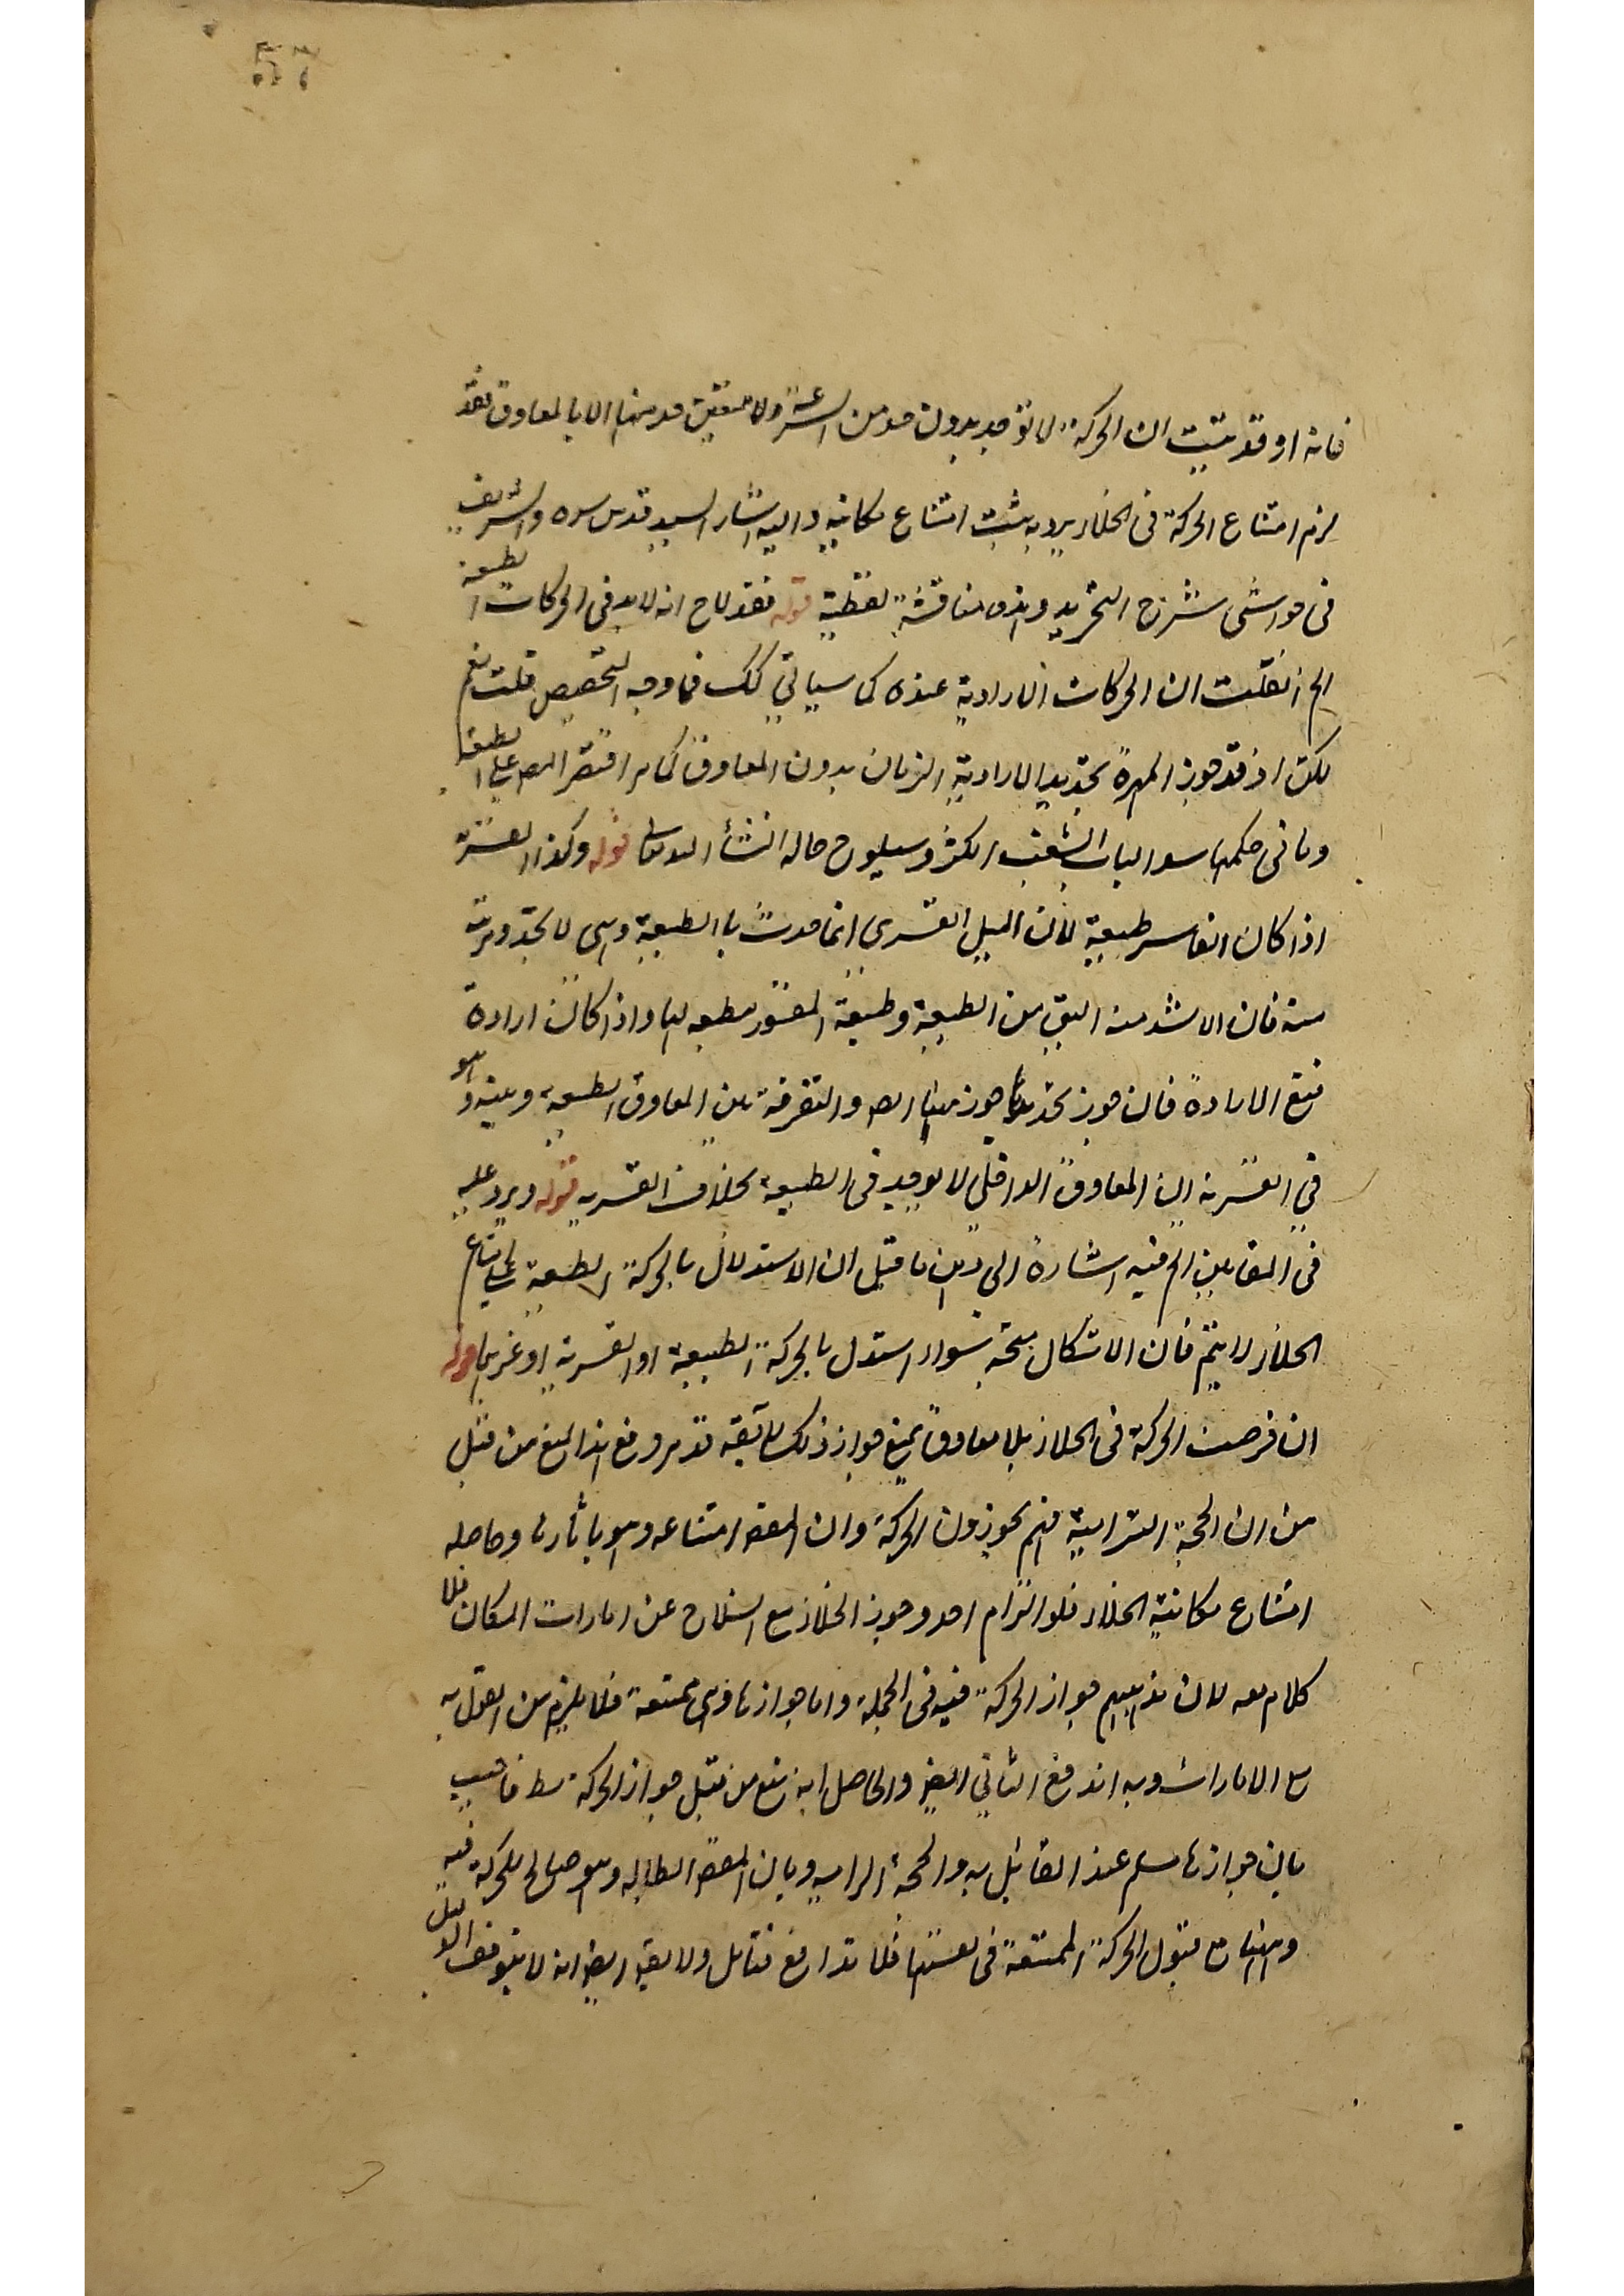 فانه اذ قد يثبت ان الحركة لا توجد بدون حد من السرعة ولا يتعين حد منها الا بالمعاوق فقد
لزم امتناع الحركة في الخلاء وبه يثبت امتناع مكانيته واليه اشار السيد قدس سره الشريف
في حواشي شرح التجريد وهذه مناقشة لفظية قوله فقد لاح انه لا بد في الحركات الطبيعية
الخ ان قلت ان الحركات الارادية عنده كما سيأتي كك فما وجه التخصيص قلت نعم
لكن اذ قد جوز المهرة تحديد الارادية الزمان بدون المعاوق كما مر اقتصر المص على الطبيعة
وما في حكمها سدا لباب الشغب وسيلوح حاله انشاء الله تعالى قوله وكذا القسرية
اذا كان القاسر طبيعية لان الميل القسري انما حدث بالطبيعة وهي لا تحدد مرتبة
منه فان الاشد منه اليق من الطبيعة وطبيعة المقسور مطيعة لها واذا كانت ارادة
فتتبع الارادة فان جوز تحديدها جوز هنا ايضا والتفرقة بين المعاوق الطبيعة وبينه هو
في القسرية ان المعاوق الداخلي لا يوجد في الطبيعة بخلاف القسرية قوله ويرد عليه
في المقامين الخ فيه اشارة الى وهن ما قيل ان الاستدلال بالحركة الطبيعية على امتناع
الخلاء لا يتم فان الاشكال متجه سواء استدل بالحركة الطبيعية او القسرية او غيرهما قوله
ان فرضت الحركة في الخلاء بلا معاوق يمنع جواز ذلك حقيقة قد مر دفع هذا المنع من قبل
من ان الحجة الزامية فهم يجوزون الحركة وان المقصود امتناعه وهو بآثاره وحاصله
امتناع مكانية الخلاء فلو التزم احد وجوز الخلاء مع انسلاخ عن امارات المكان فلا
كلام معه لان مذهبهم جواز الحركة فيه في الجملة واما جوازها وهي ممتنعة فلا يلزم من القول به
مع الامارات وبه اندفع الثاني ايضا والحاصل انه منع من قبل جواز الحركة فاجيب
بان جوازها مسلم عند القائل به والحجة الزامية وبان المقصود ابطاله وهو صالح للحركة فيه
وههنا مع قبول الحركة الممتنعة في نفسها فلا تدافع فتأمل ولا يقدر ايضا انه لا يتوقف الدليل